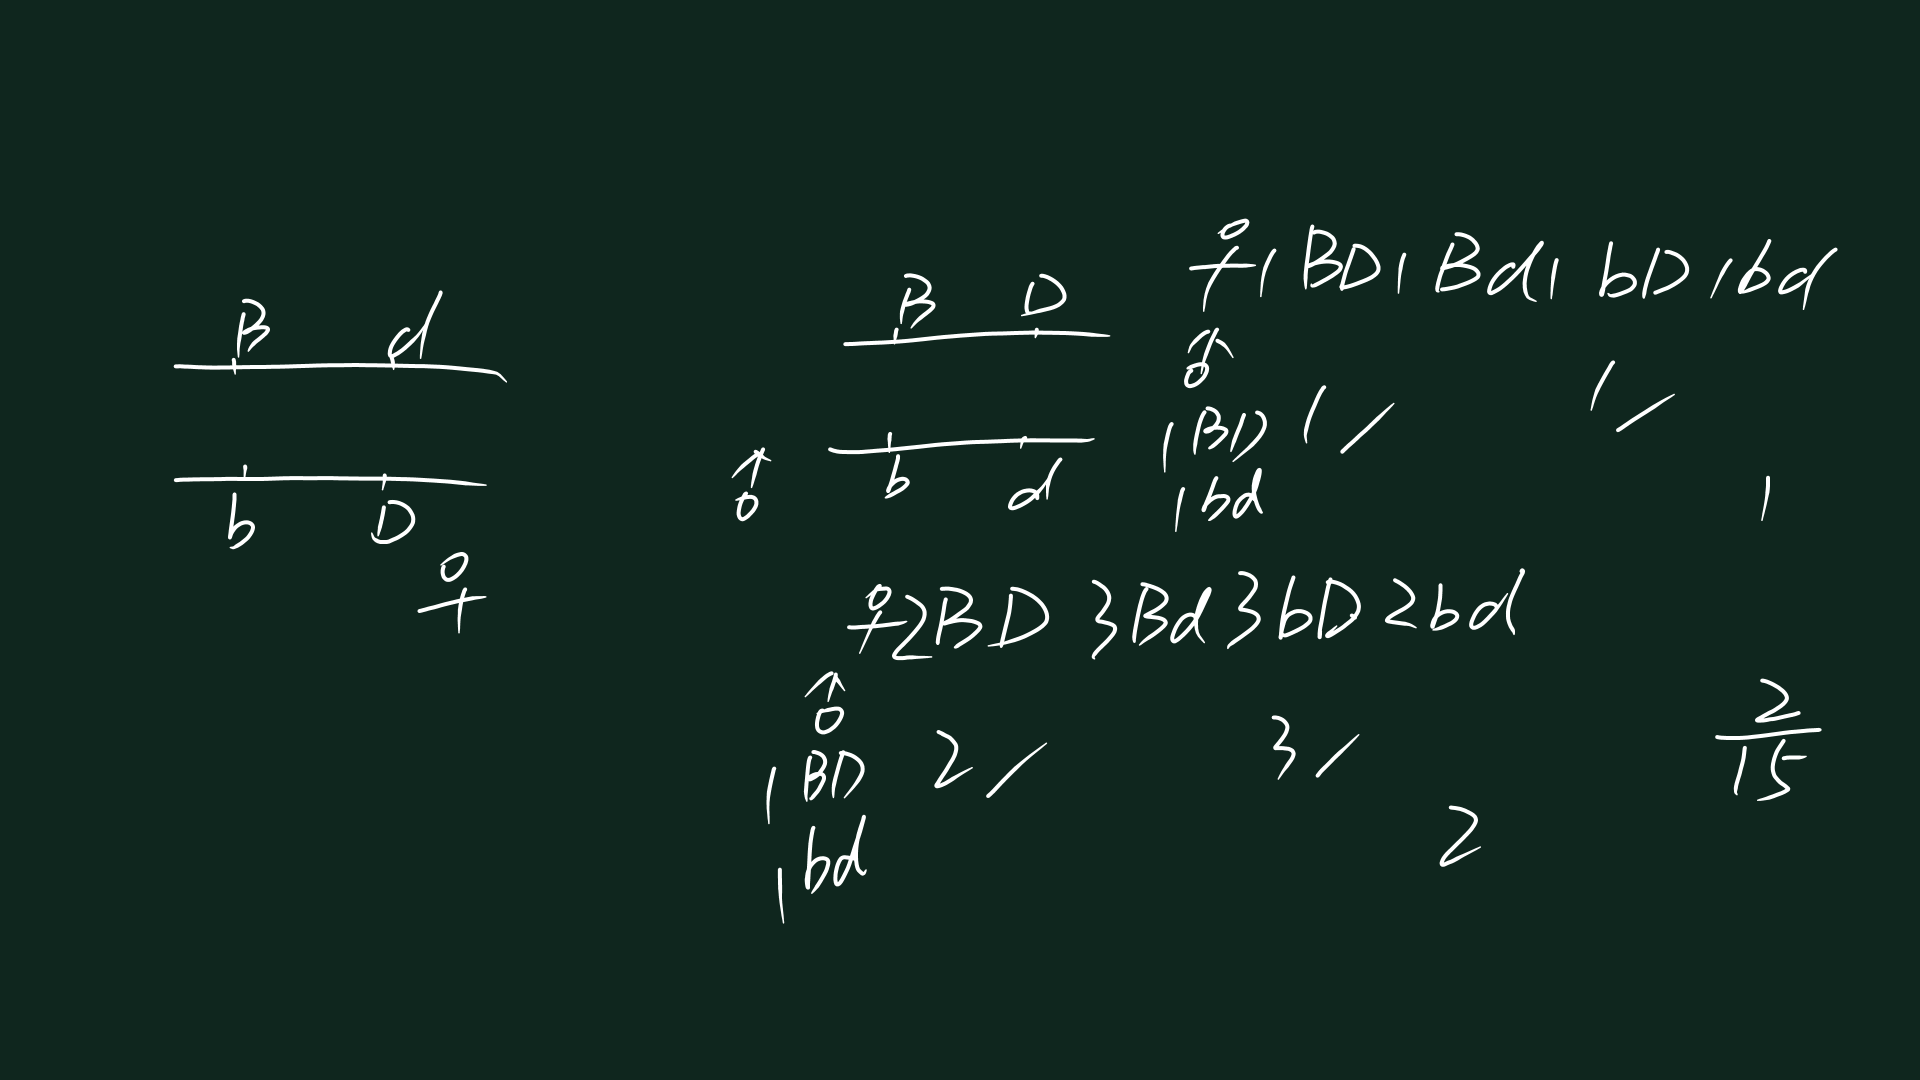 B d
b D
♀
B D
b d
♂
♀ 1 BD 1 Bd 1 bD 1 bd
♂
1 BD 1 / 1 /
1 bd 1
♀ 2BD 3Bd 3bD 2bd
♂
1 BD 2 / 3 /
1 bd 2
2
15